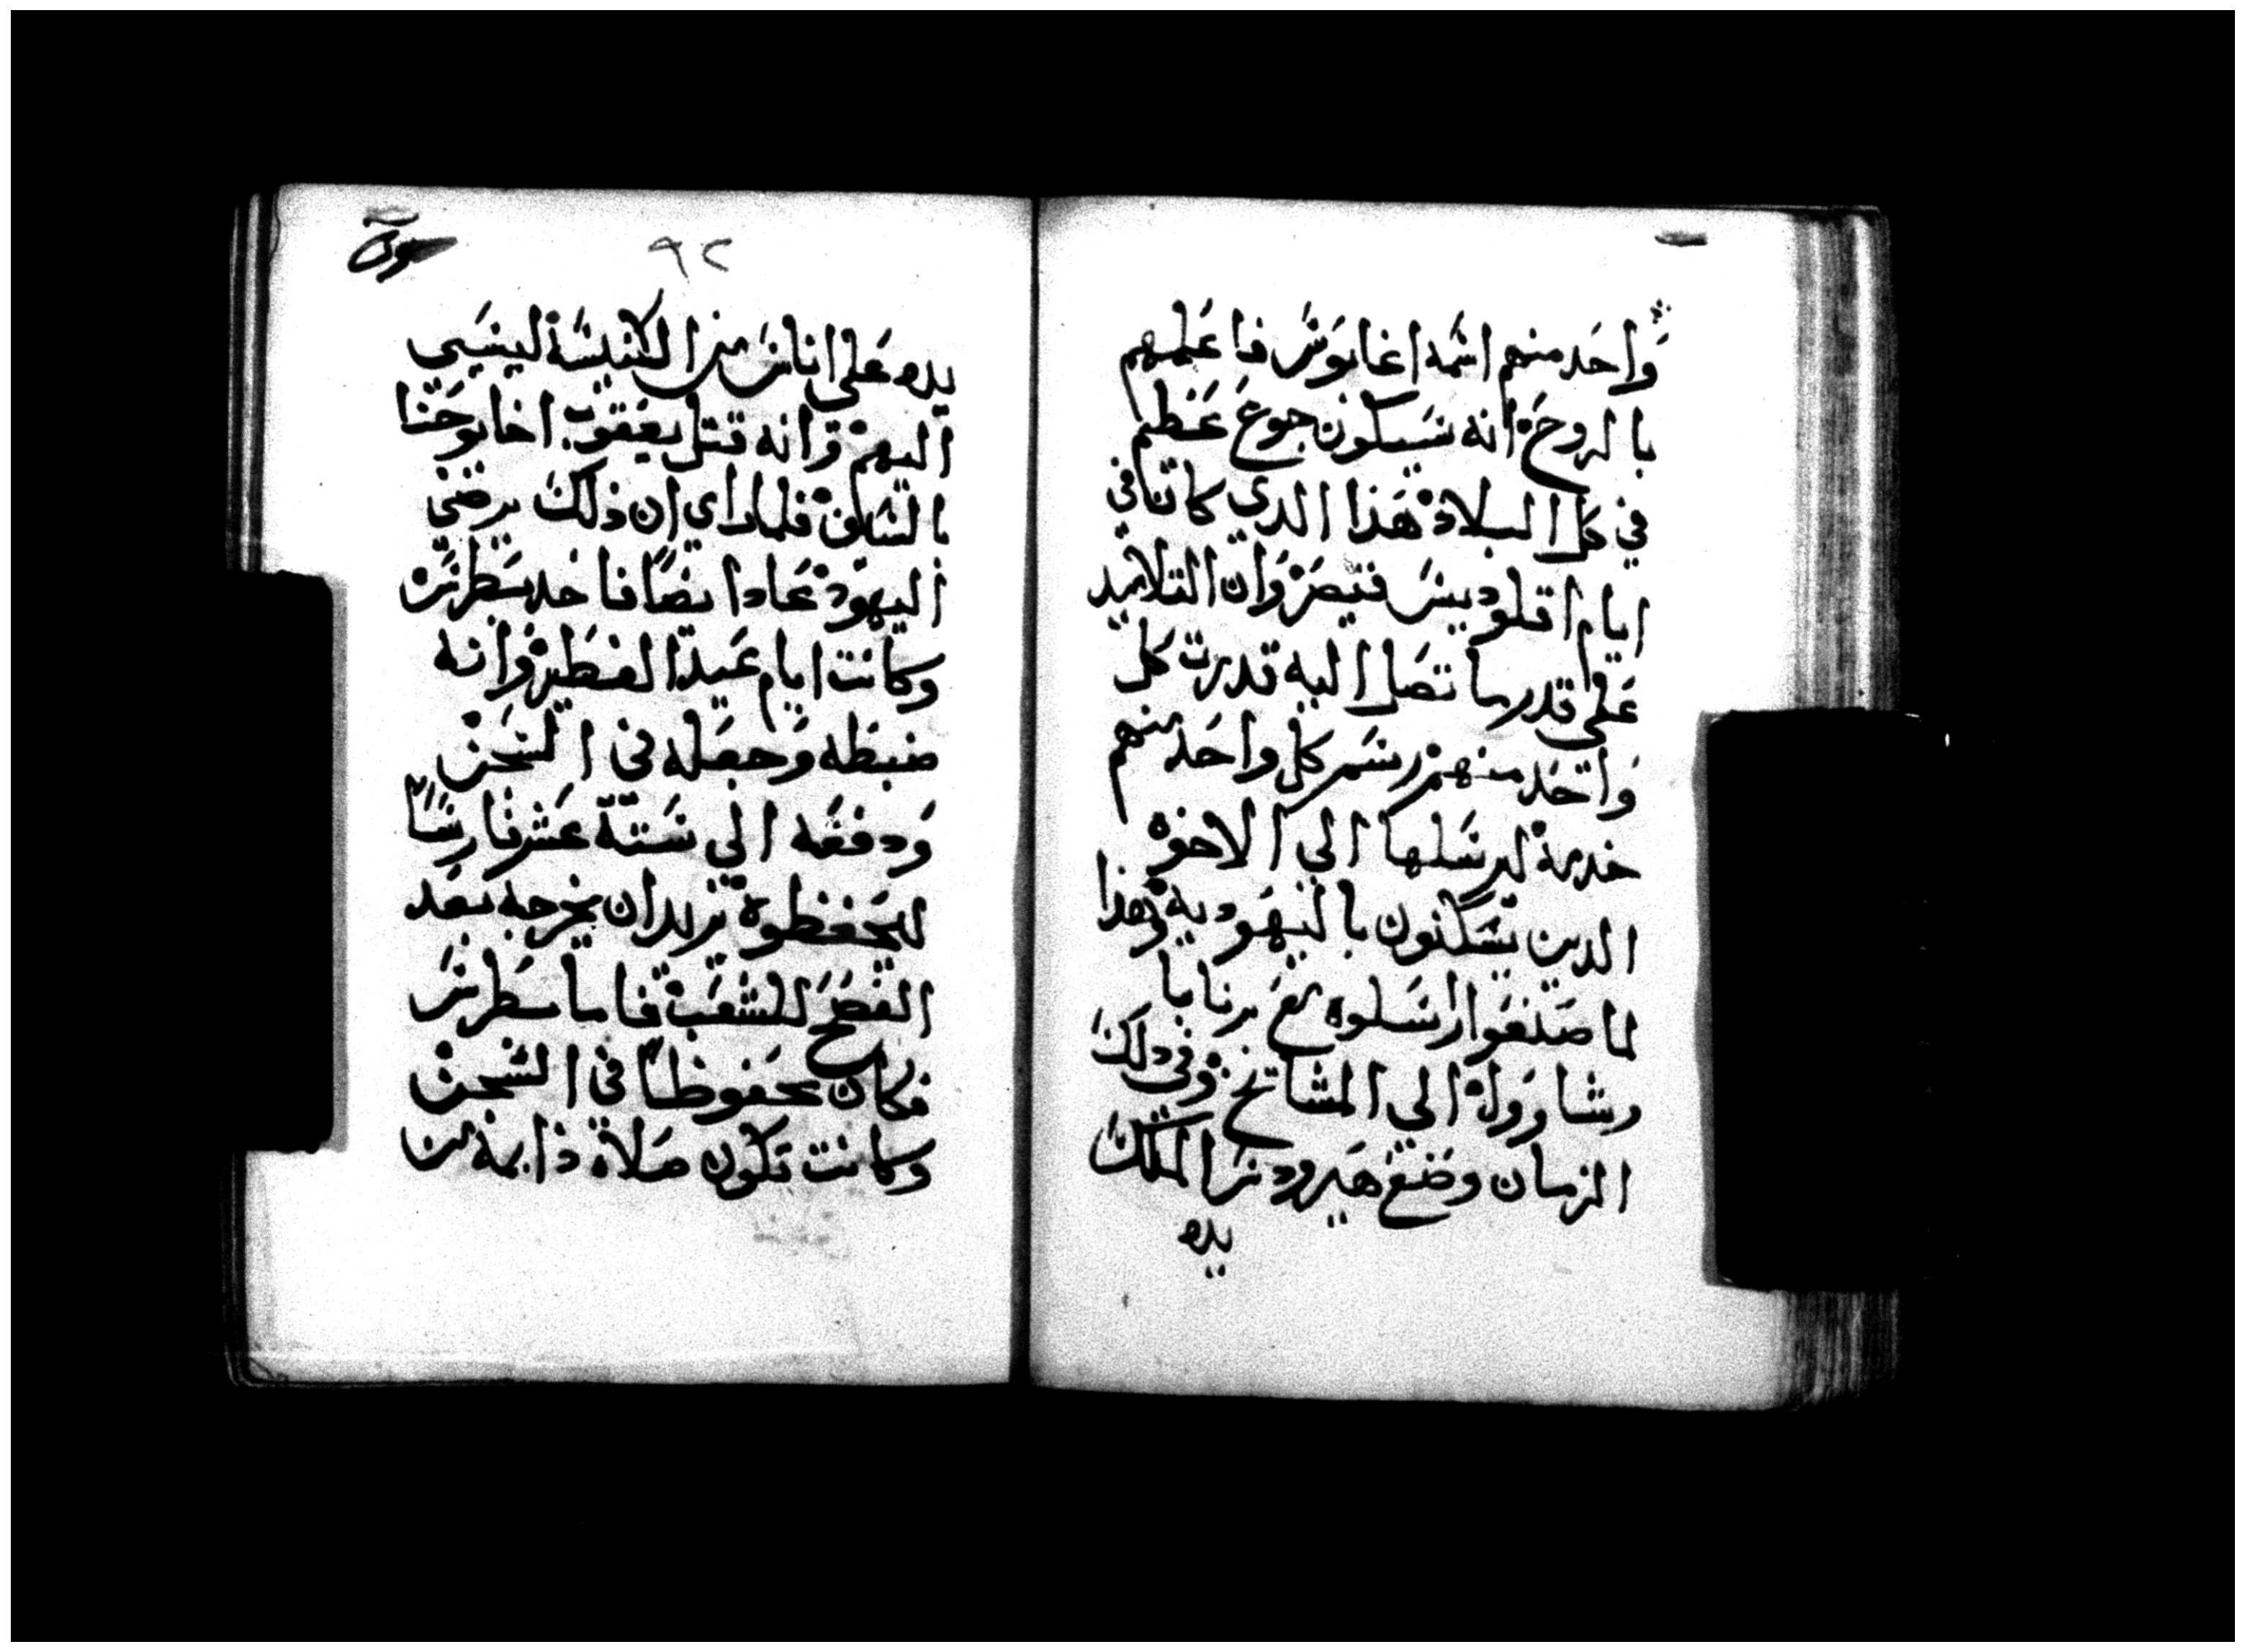 واحد منهم اسمه اغابوس فاعلمهم
بالروح انه سيكون جوع عظيم
في كل البلاد هذا الدي كان في
ايام اقلوديس قيصر وان التلاميد
علي قدر ما تصل اليه قدرت كل
واحد منهم رسم كل واحد منهم
خدمة ليرسلها الي الاخوه
الدين يسكنون باليهودية وهذا
لما صنعوا ارسلوه مع برنابا
وشاوول الي المشايخ وفي دلك
الزمان وضع هيرودس الملك
يده
٩٢
يده علي اناس من الكنيسة ليسي
اليهم وانه قتل يعقوب اخا يوحنا
بالسيف فلما راي ان ذلك يرضي
اليهود عاد ايضا فاخد بطرس
وكانت ايام عيد الفطير وانه
ضبطه وجعله في السجن
ودفعه الي ستة عشر فارسا
ليحفظوه يريد ان يخرجه بعد
الفصح للشعب فاما بطرس
فكان محفوظا في السجن
وكانت تكون صلاة دايمة من